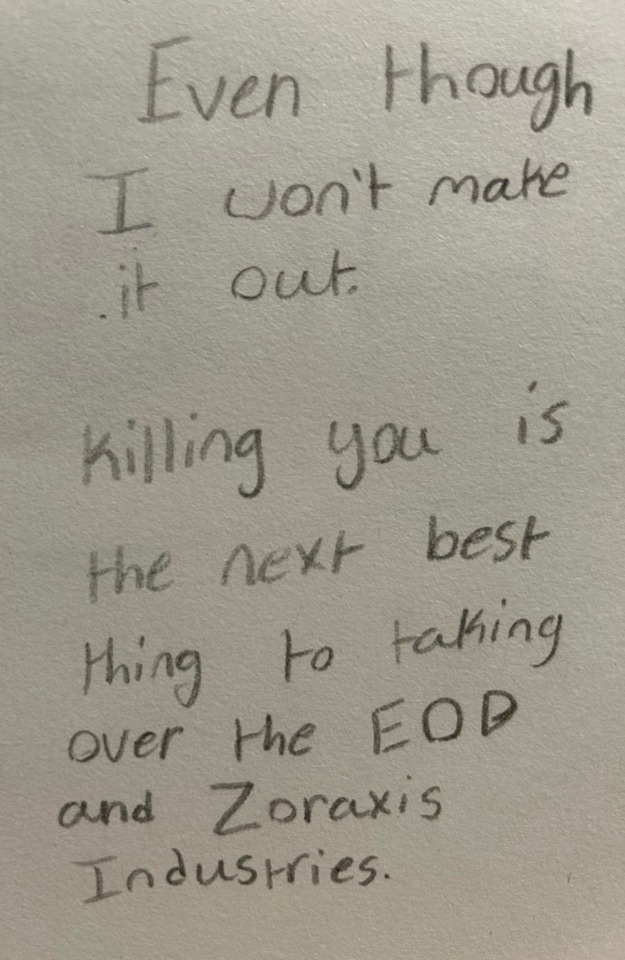 Even though
I won't make
it out.
killing you is
the next best
thing to taking
over the EOD
and Zoraxis
Industries.